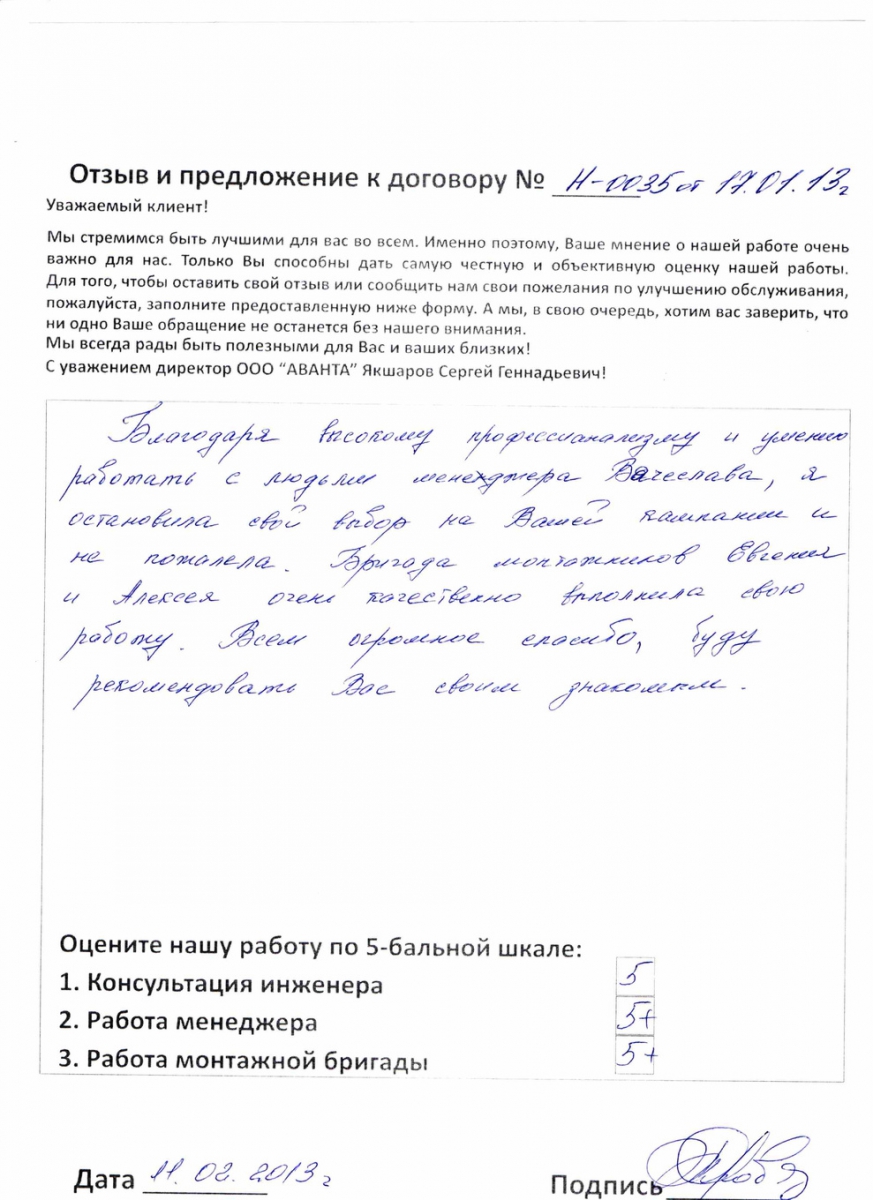 Отзыв и предложение к договору № Н-0035 от 17.01.13г
Уважаемый клиент!
Мы стремимся быть лучшими для вас во всем. Именно поэтому, Ваше мнение о нашей работе очень
важно для нас. Только Вы способны дать самую честную и объективную оценку нашей работы.
Для того, чтобы оставить свой отзыв или сообщить нам свои пожелания по улучшению обслуживания,
пожалуйста, заполните предоставленную ниже форму. А мы, в свою очередь, хотим вас заверить, что
ни одно Ваше обращение не останется без нашего внимания.
Мы всегда рады быть полезными для Вас и ваших близких!
С уважением директор ООО “АВАНТА” Якшаров Сергей Геннадьевич!
Благодаря высокому професианализму и умению
работать с людьми менеджера Вячеслава, я
остановила свой выбор на Вашей кампании и
не пожалела. Бригада монтажников Евгения
и Алексея очень качественно выполнила свою
работу. Всем огромное спасибо, буду
рекомендовать Вас своим знакомым.
Оцените нашу работу по 5-бальной шкале:
1. Консультация инженера 5
2. Работа менеджера 5+
3. Работа монтажной бригады 5+
Дата 11.02.2013г Подпись